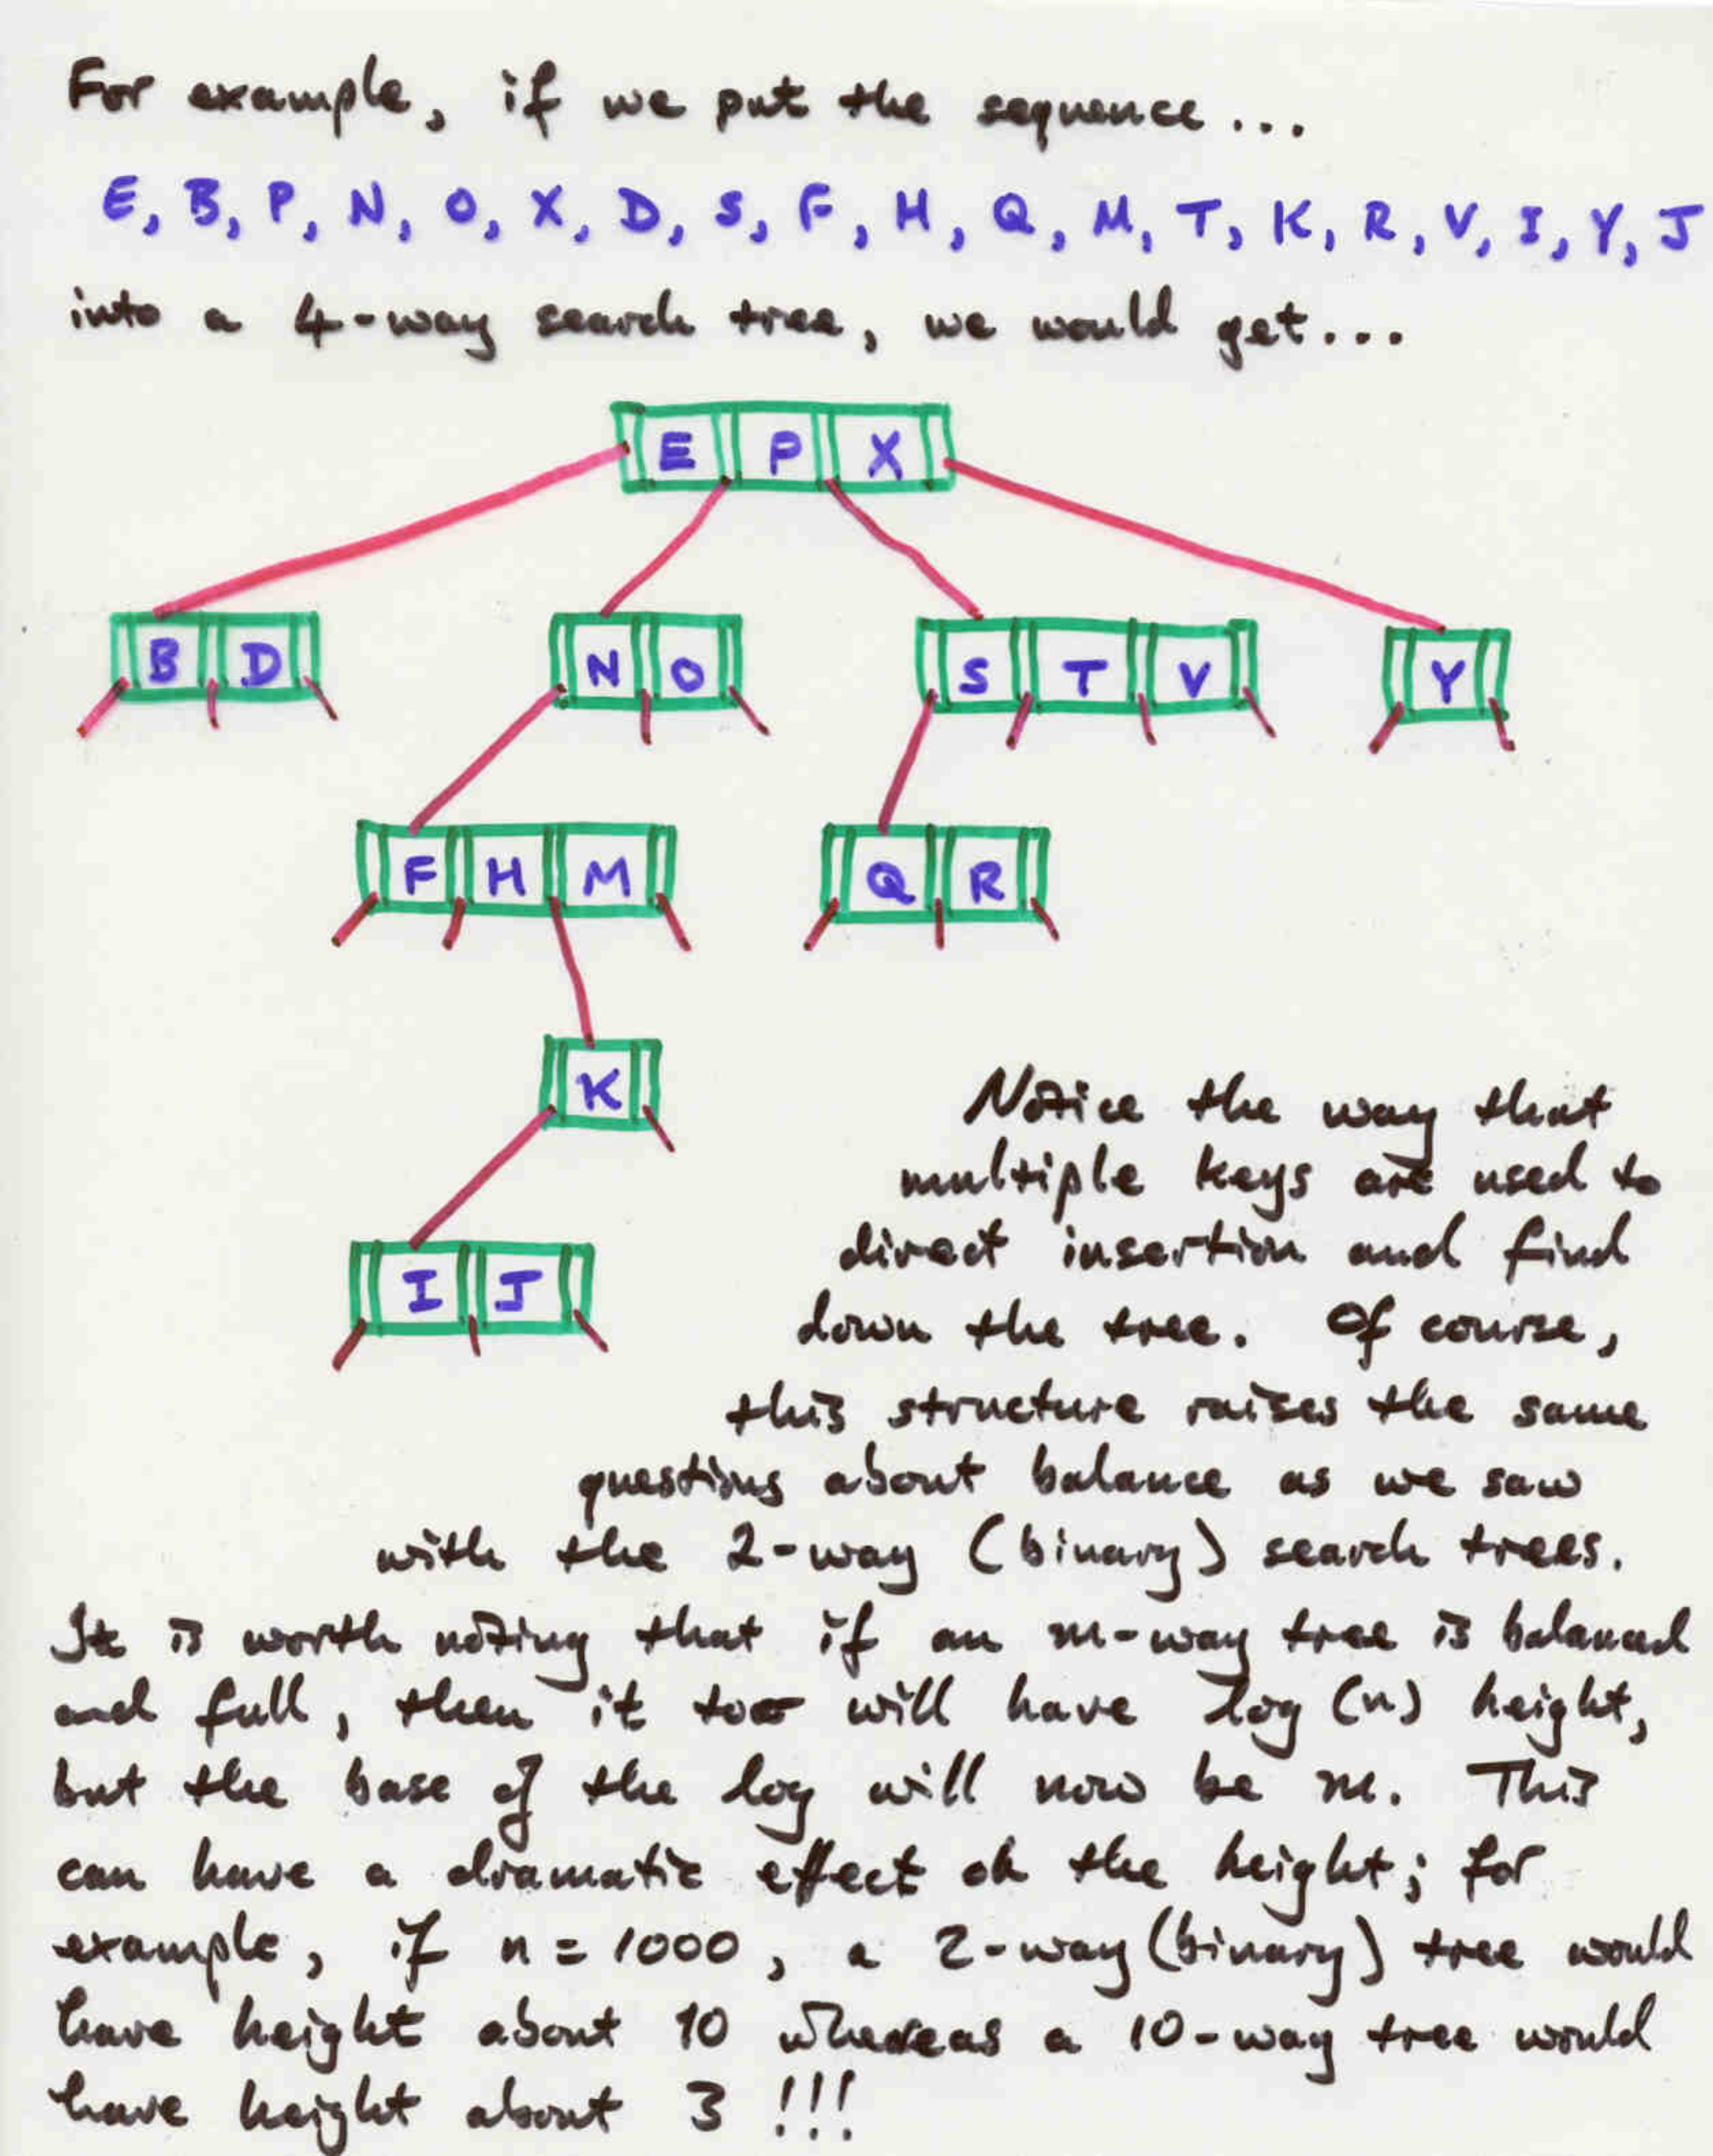 For example, if we put the sequence...
E, B, P, N, O, X, D, S, F, H, Q, M, T, K, R, V, I, Y, J
into a 4-way search tree, we would get...
E P X
B D
N O
S T V
Y
F H M
Q R
K
I J
Notice the way that
multiple keys are used to
direct insertion and find
down the tree. Of course,
this structure raises the same
questions about balance as we saw
with the 2-way (binary) search trees.
It is worth noting that if an m-way tree is balanced
and full, then it too will have log (n) height,
but the base of the log will now be m. This
can have a dramatic effect on the height; for
example, if n = 1000, a 2-way (binary) tree would
have height about 10 whereas a 10-way tree would
have height about 3 !!!